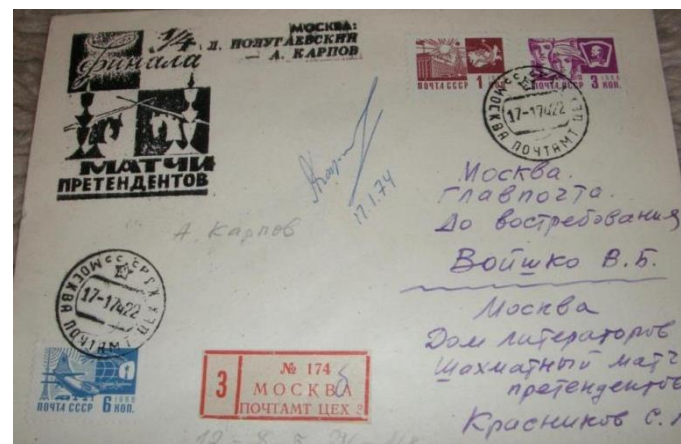 1/4 финала
МОСКВА:
Л. ПОЛУГАЕВСКИЙ
— А. КАРПОВ
МАТЧИ
ПРЕТЕНДЕНТОВ
ПОЧТА СССР 1 КОП.
ПОЧТА СССР 3 КОП.
МОСКВА ПОЧТАМТ ЦЕХ
17-17422
17.1.74
А. Карпов
Москва.
Главпочта.
До востребования
Войшко В.Б.
Москва
Дом литераторов
Шахматный матч
претендентов
Красников С.
МОСКВА ПОЧТАМТ ЦЕХ
17-17422
ПОЧТА СССР 6 КОП.
З
№ 174
МОСКВА
ПОЧТАМТ ЦЕХ